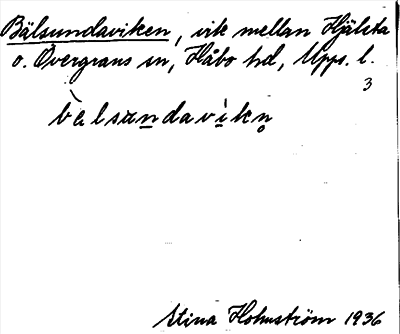 Bälsundaviken, vik mellan Hjälsta
o. Övergrans sn, Håbo hd, Upps. l.
3
bè̀lsu̲n̲daviken̥
Stina Holmström 1936